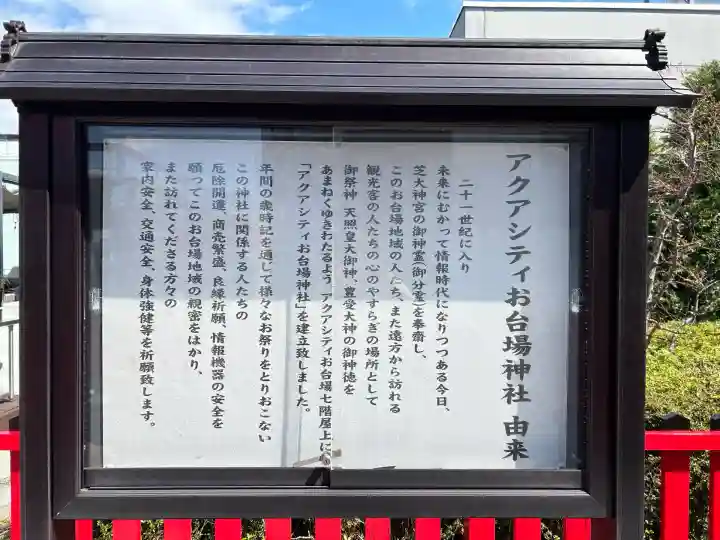 アクアシティお台場神社 由来
二十一世紀に入り
未来にむかって情報時代になりつつある今日、
芝大神宮の御神霊(御分霊)を奉齋し、
このお台場地域の人たち、また遠方から訪れる
観光客の人たちの心のやすらぎの場所として
御祭神 天照皇大御神、豊受大神の御神徳を
あまねくゆきわたるよう アクアシティお台場七階屋上に
「アクアシティお台場神社」を建立致しました。
年間の歳時記を通して様々なお祭りをとりおこない
この神社に関係する人たちの
厄除開運、商売繁盛、良縁祈願、情報機器の安全を
願つてこのお台場地域の親密をはかり、
また訪れてくださる方々の
家内安全、交通安全、身体強健等を祈願致します。